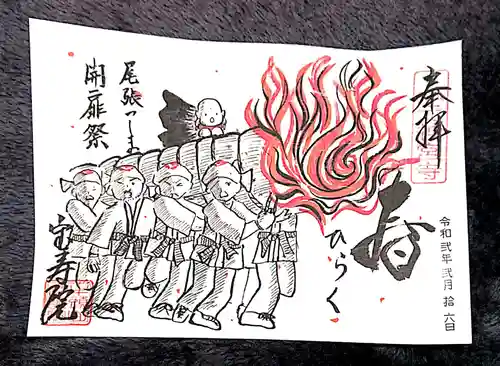 奉拝
令和弐年弐月拾六日
春
ひらく
尾張つしま
開扉祭
宝寿院